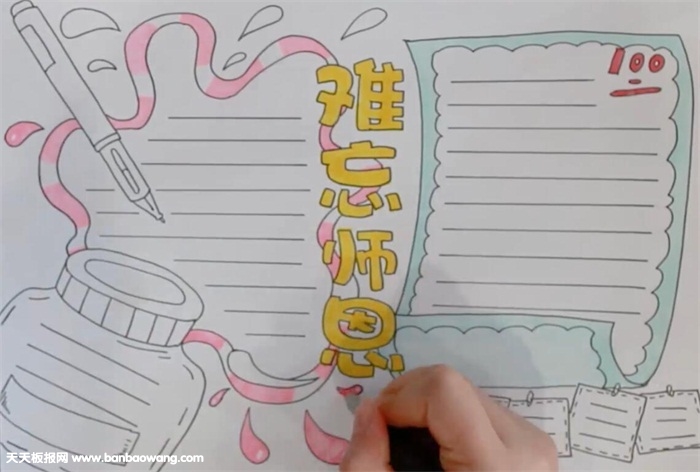 难忘师恩
100
天天板报网 www.banbaowang.com